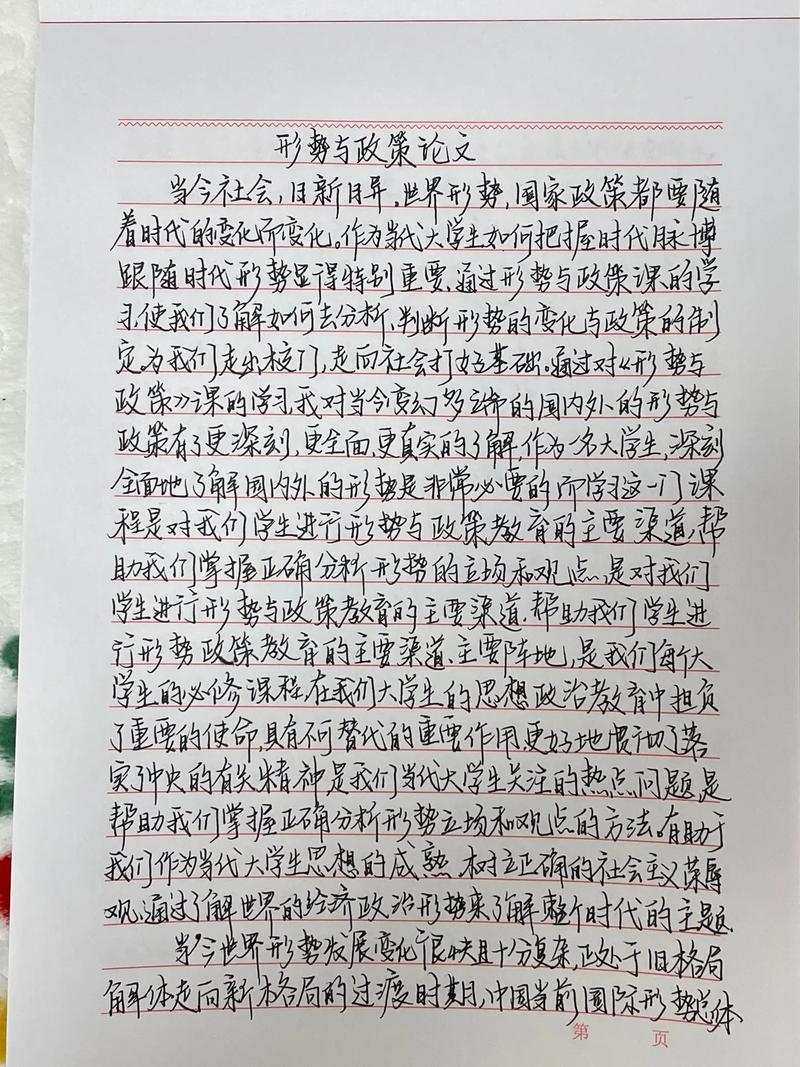 形势与政策论文
当今社会,日新月异。世界形势,国家政策都要随
着时代的变化而变化。作为当代大学生如何把握时代脉搏
跟随时代形势显得特别重要、通过形势与政策课的学
习,使我们了解如何去分析、判断形势的变化与政策的制
定。为我们走出校门,走向社会打好基础。通过对《形势与
政策》课的学习,我对当今变幻多端的国内外的形势与
政策有了更深刻、更全面、更真实的了解,作为一名大学生,深刻
全面地了解国内外的形势是非常必要的,而学习这一门课
程是对我们学生进行形势与政策教育的主要渠道,帮
助我们掌握正确分析形势的立场和观点,是对我们
学生进行形势与政策教育的主要渠道.帮助我们学生进
行形势政策教育的主要渠道、主要阵地,是我们每个大
学生的必修课程,在我们大学生的思想政治教育中担负
了重要的使命,具有不可替代的重要作用,更好地贯彻了落
实了中央的有关精神是我们当代大学生关注的热点问题,是
帮助我们掌握正确分析形势立场和观点的方法。有助于
我们作为当代大学生思想的成熟.树立正确的社会主义荣辱
观.通过了解世界的经济政治形势来了解整个时代的主题.
当今世界形势发展变化很快且十分复杂,正处于旧格局
解体走向新格局的过渡时期,中国当前国际形势总体
第 页